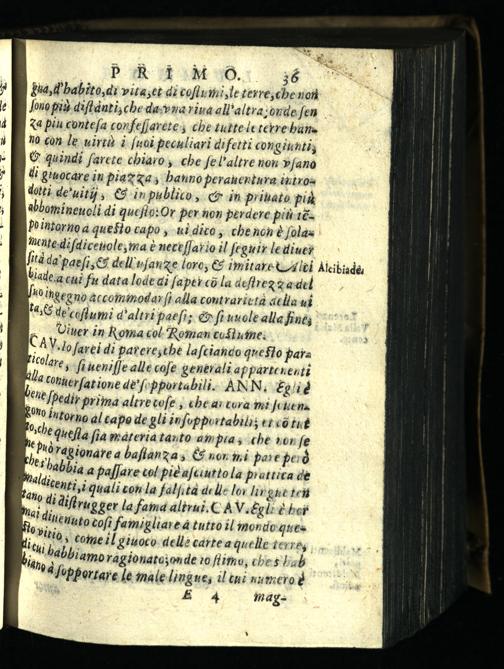 PRIMO. 36
gua, d'habito, di vita, et di costumi, le terre, che non
sono più distãti, che da vna riua all'altra; onde sen
za più contesa confessarete, che tutte le terre han-
no con le virtù i suoi peculiari difetti congiunti,
& quindi sarete chiaro, che se l'altre non vsano
di giuocare in piazza, hanno perauentura intro-
dotti de' uitij, & in publico, & in priuato più
abbomineuoli di questo: Or per non perdere più tẽ-
po intorno a questo capo, ui dico, che non è sola-
mente disdiceuole, ma è necessario il seguir le diuer
sità da' paesi, & dell'usanze loro, & imitare Alci
Alcibiade.
biade. a cui fu data lode di saper cõ la destrezza del
suo ingegno accommodarsi alla contrarietà della ui
ta, & de' costumi d'altri paesi; & si uuole alla fine,
Viuer in Roma col Roman costume.
CAV. Io sarei di parere, che lasciando questo par-
ticolare, si uenisse alle cose generali appartenenti
alla conuersatione de' sopportabili. ANN. Egli è
bene spedir prima altre cose, che ancora mi souen-
gono intorno al capo de gli insopportabili; et cõ tut
to, che questa sia materia tanto ampia, che non se
ne può ragionare a bastanza, & non mi pare però
che s'habbia a passare col piè asciutto la prattica de
maldicenti, i quali con la falsità delle lor lingue ten
tano di distrugger la fama altrui. CAV. Egli è hor
mai diuenuto così famigliare à tutto il mondo que-
sto vitio, come il giuoco delle carte a quelle terre,
di cui habbiamo ragionato; onde io stimo, che s'hab
biano à sopportare le male lingue, il cui numero è
E 4 mag-